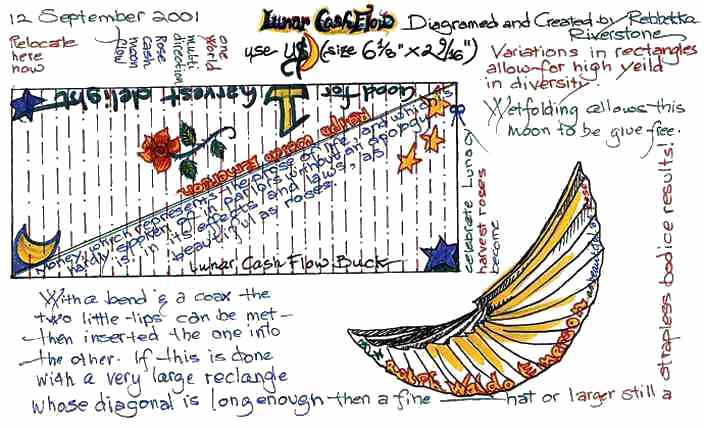 12 September 2001
Lunar Cash Flow
Diagramed and Created by Rebbetka
Riverstone
use US (size 6 1/8" x 2 9/16")
Relocate
here
now
flow
moon
cash
Rose
multi direction
World
one
Variations in rectangles
allow for high yeild
in diversity.
Wetfolding allows this
moon to be glue-free.
Good for 1 harvest delight
ralph waldo Emerson
Money, which represents the prose of life, and which is
hardly spoken of in parlors without an apology,
is, in its effects and laws, as
beautiful as roses.
Lunar Cash Flow Buck
celebrate Lunacy
harvest roses
become
With a bend & a coax the
two little-lips can be met—
then inserted the one into
the other. If this is done
with a very large rectangle
whose diagonal is long enough then a fine hat or larger still a
strapless bodice results!
Ralph Waldo Emerson